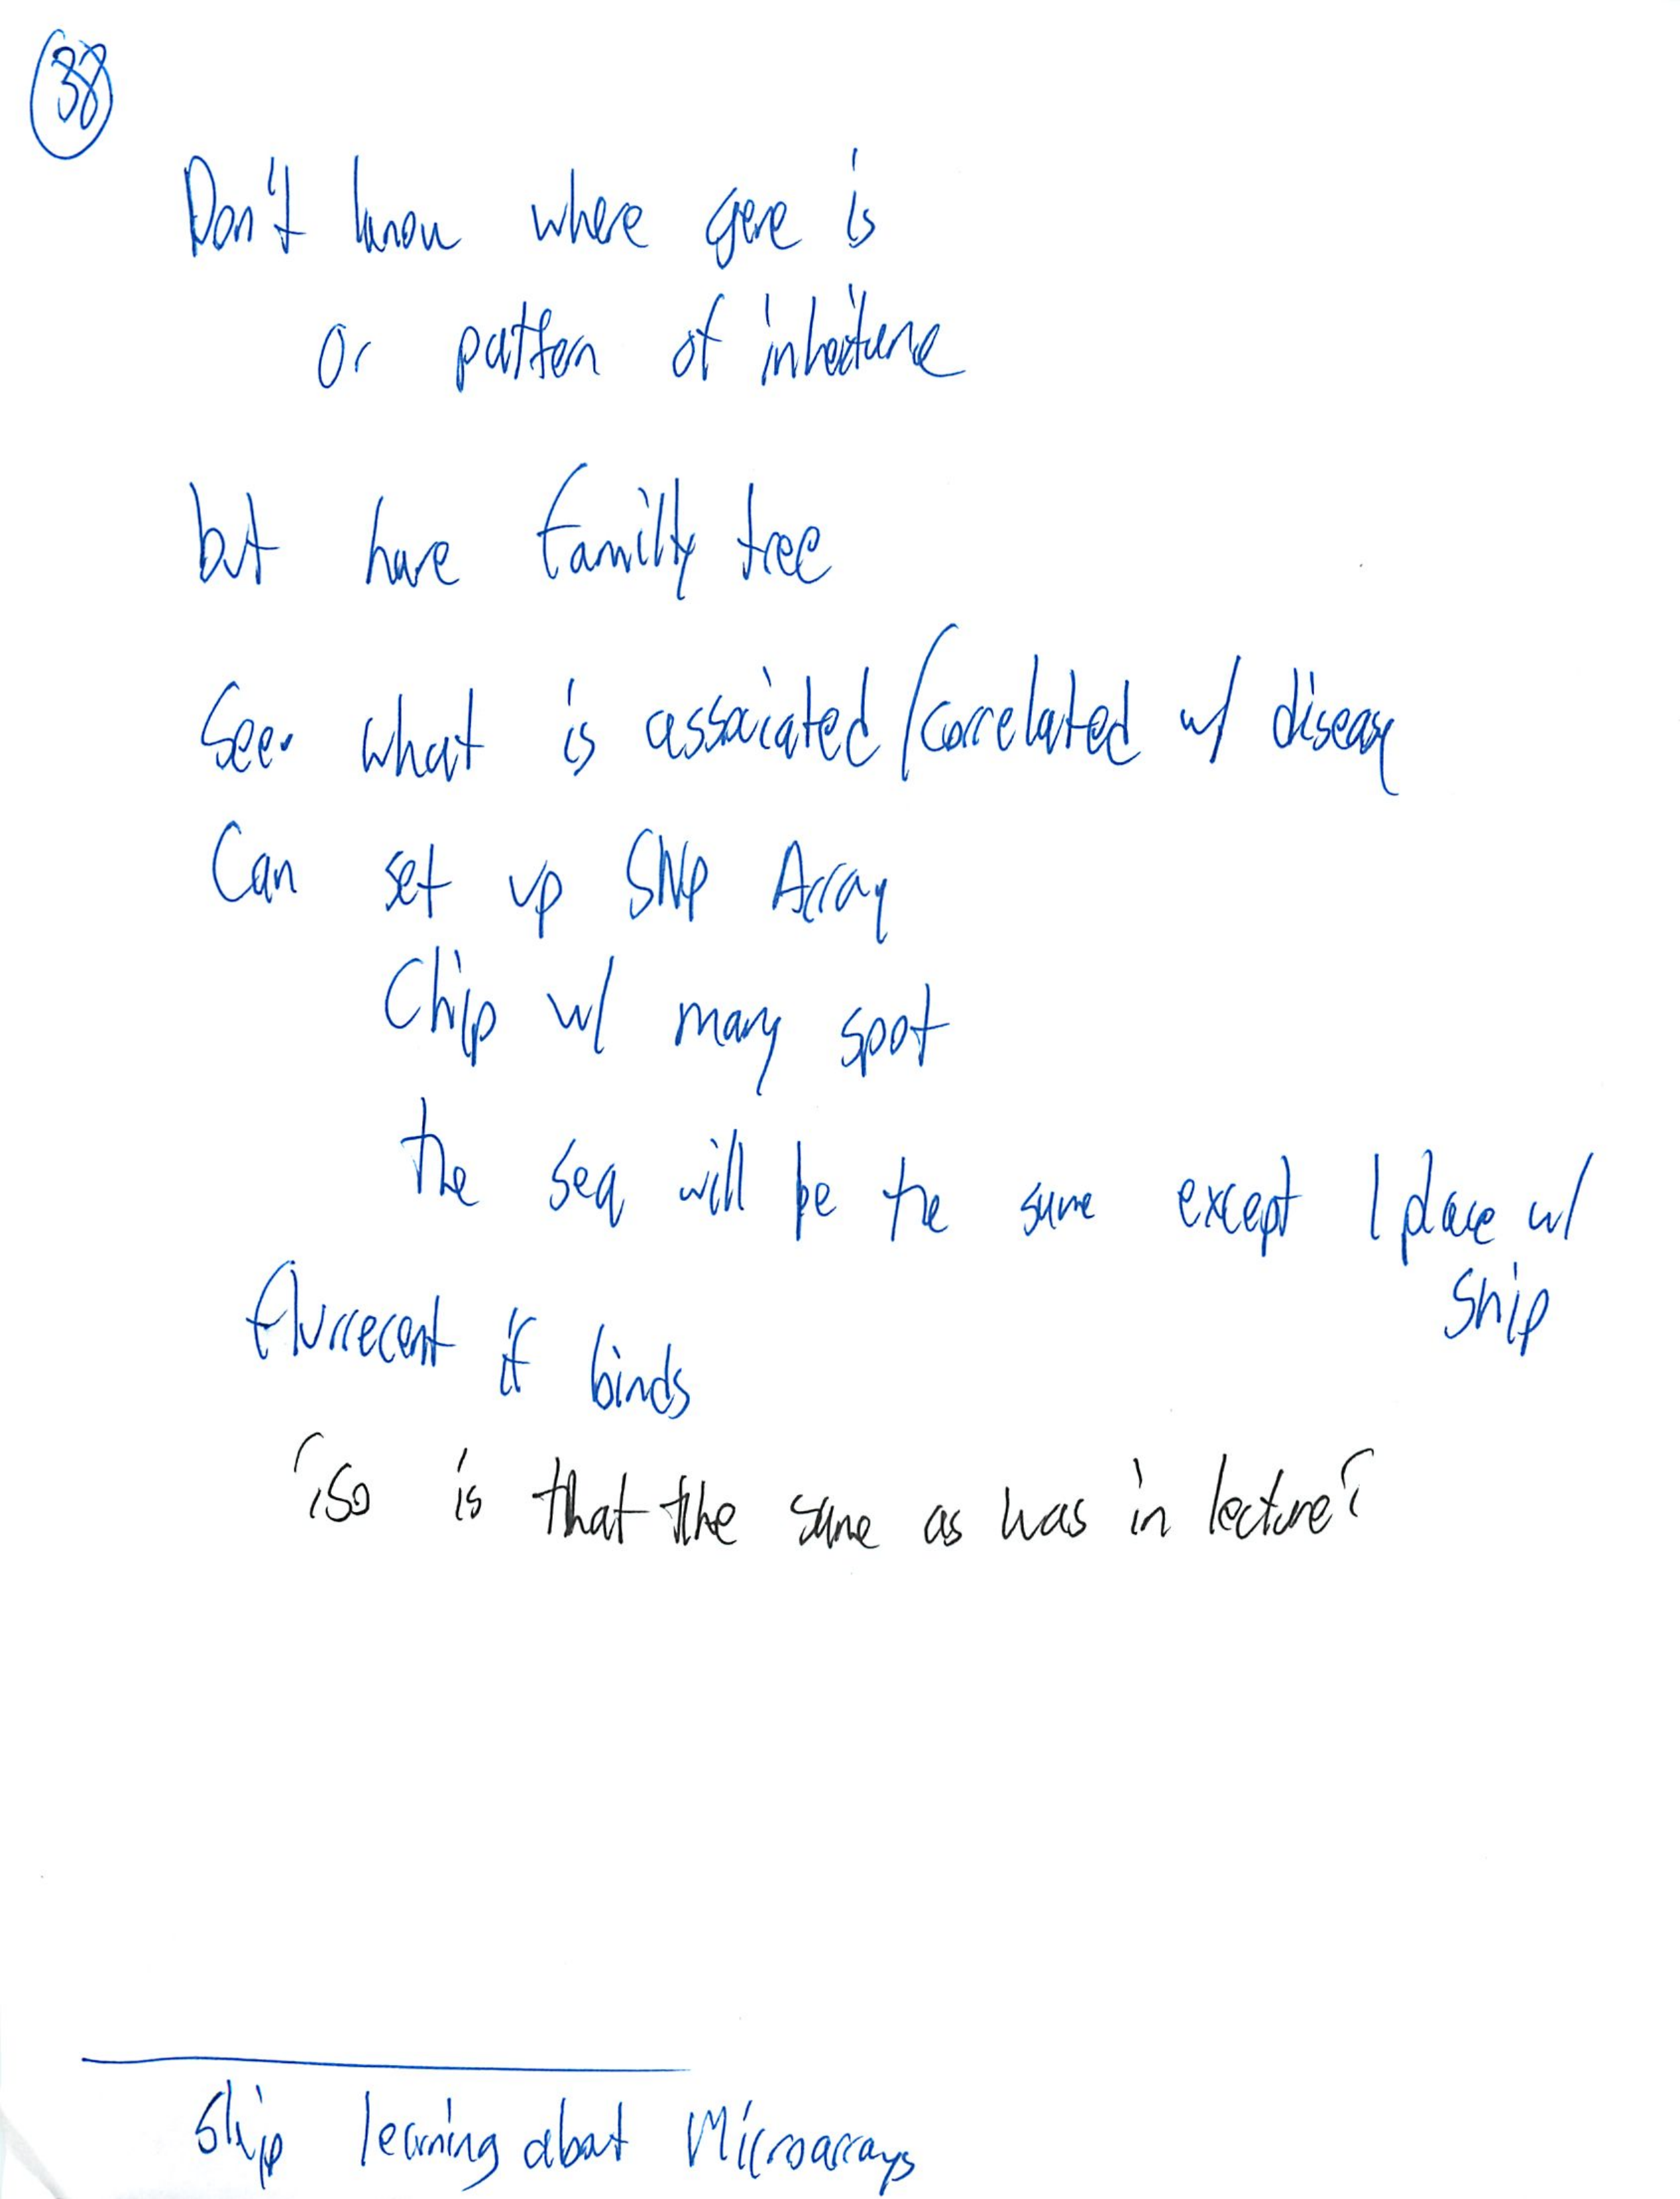 38
Don't know where gene is
or pattern of inheritence
but have familty tree
See what is associated/correlated w/ diseas
Can set up SNP Array
Chip w/ many spot
the seq will be the same except 1 place w/
snip
flurrecent if binds
is that the same as was in lecture?
Skip learning about Microarrays